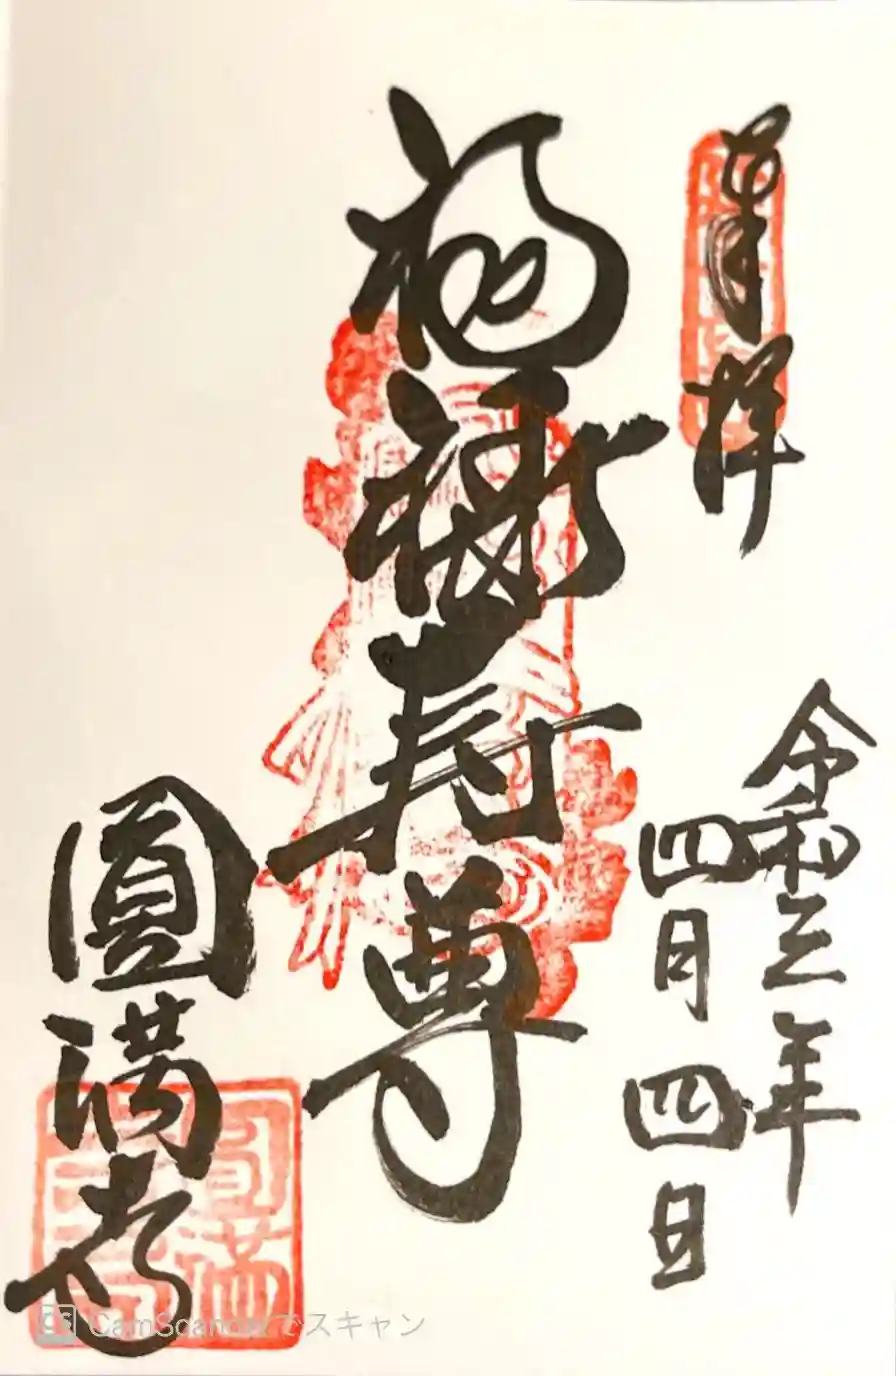 奉拝
令和三年
四月四日
福禄寿尊
圓満寺
CS CamScannerでスキャン